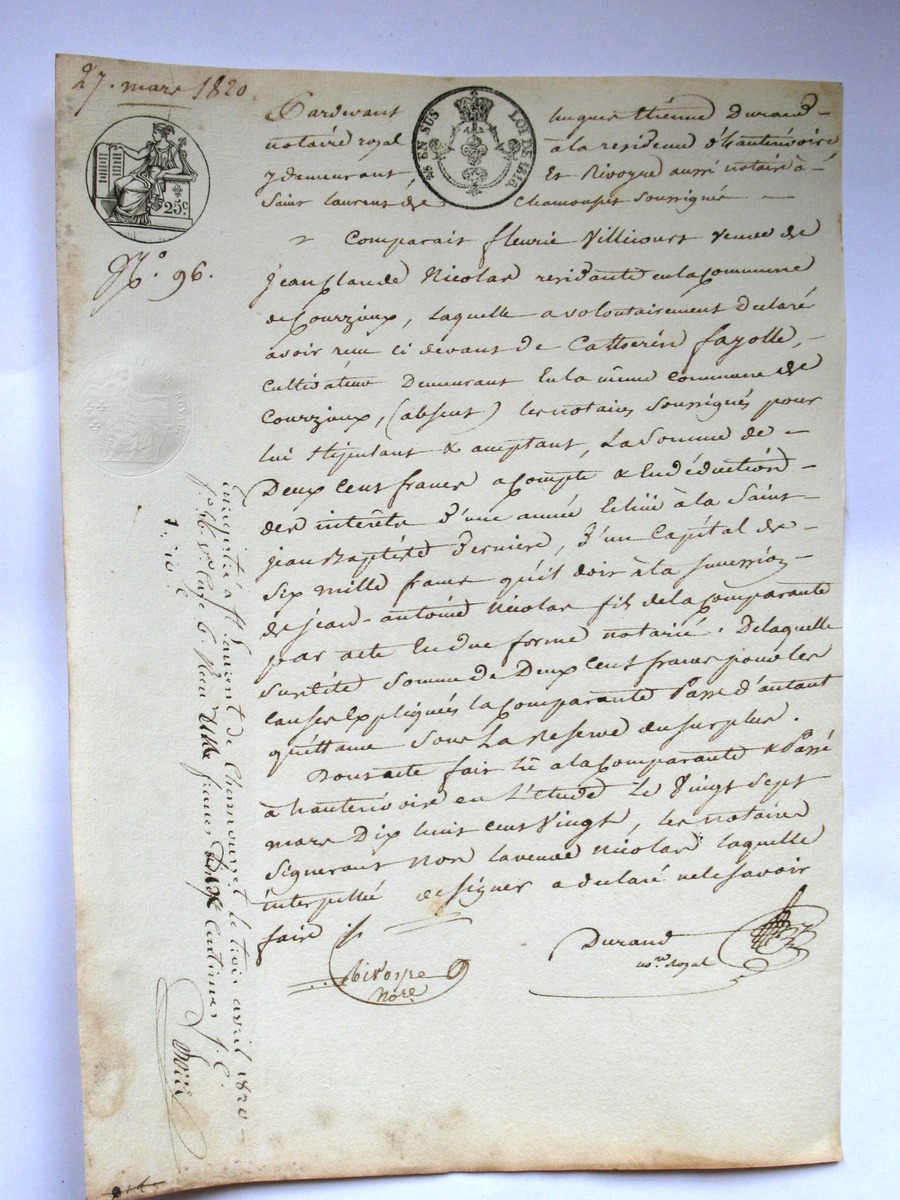 27. mars 1820.
Pardevant hugues étienne Durand
notaire royal à la residence d'hauterivoire
y demeurant Et Rivoyre aussi notaire à
Saint laurent de Chamousset soussignés
25 EN SUS LOI DE 1816.
25 c.
N.° 96.
Comparait fleurie Villicourt veuve de
jean Claude Nicolas residante en la Commune
de Courzieux, laquelle a volontairement Declaré
avoir reçu ci devant de Catherin fayolle,
Cultivateur Demeurant En la même Commune de
Courzieux, (absent) les notaires soussignés pour
lui stipulant & acceptant, La Somme de
Deux Cent francs a Compte & En déduction
des interêts d'une année Echüe à la Saint
jean Baptiste Derniere, d'un Capital de
Six mille francs qu'il doit à la succession
de jean-antoine Nicolas fils de la Comparante
par acte En due forme notarié. De laquelle
susdite somme de Deux Cent francs pour les
causes Expliquées la Comparante Passe d'autant
quittance sous La Reserve du surplus.
Dont acte fait lû à la Comparante & Passé
à hauterivoire en L'étude Le Vingt Sept
mars Dix huit cent Vingt, les notaires
signeront non la veuve Nicolas laquelle
interpellée de signer a declaré ne le savoir
faire
Rivoyre
Nore.
Durand
no.re Royal
Enregistré à St Laurent de Chamousset le trois avril 1820
f.° 96 v.° Case 6. Recu Une franc Dix Centimes
1. 10.